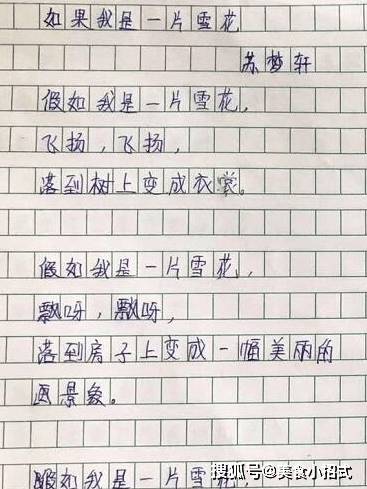 如果我是一片雪花
苏梦轩
假如我是一片雪花，
飞扬，飞扬，
落到树上变成衣裳。
假如我是一片雪花，
飘呀，飘呀，
落到房子上变成一幅美丽的
画景象。
假如我是一片雪花，
搜狐号@美食小招式